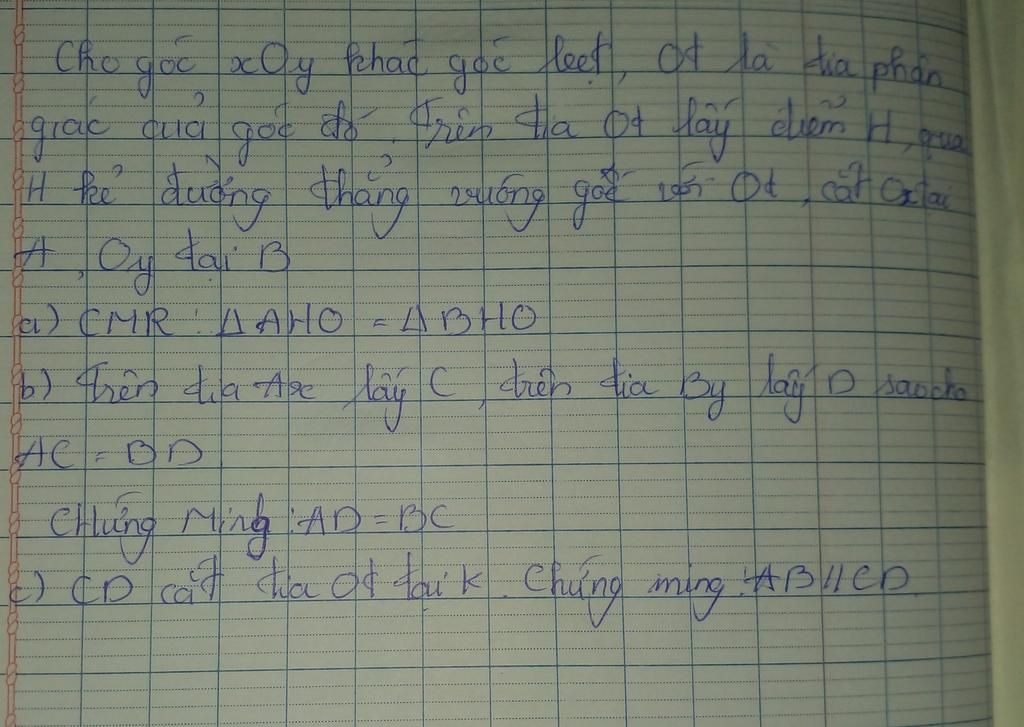 Cho góc xOy khác góc bẹt, Ot là tia phân
giác của góc đó. Trên tia Ot lấy điểm H, qua
H kẻ đường thẳng vuông góc với Ot, cắt Ox tại
A, Oy tại B
a) CMR: Δ AHO = Δ BHO
b) Trên tia Ax lấy C, trên tia By lấy D sao cho
AC = BD
Chứng Ming: AD = BC
c) CD cắt tia Ot tại K. Chứng ming: AB // CD